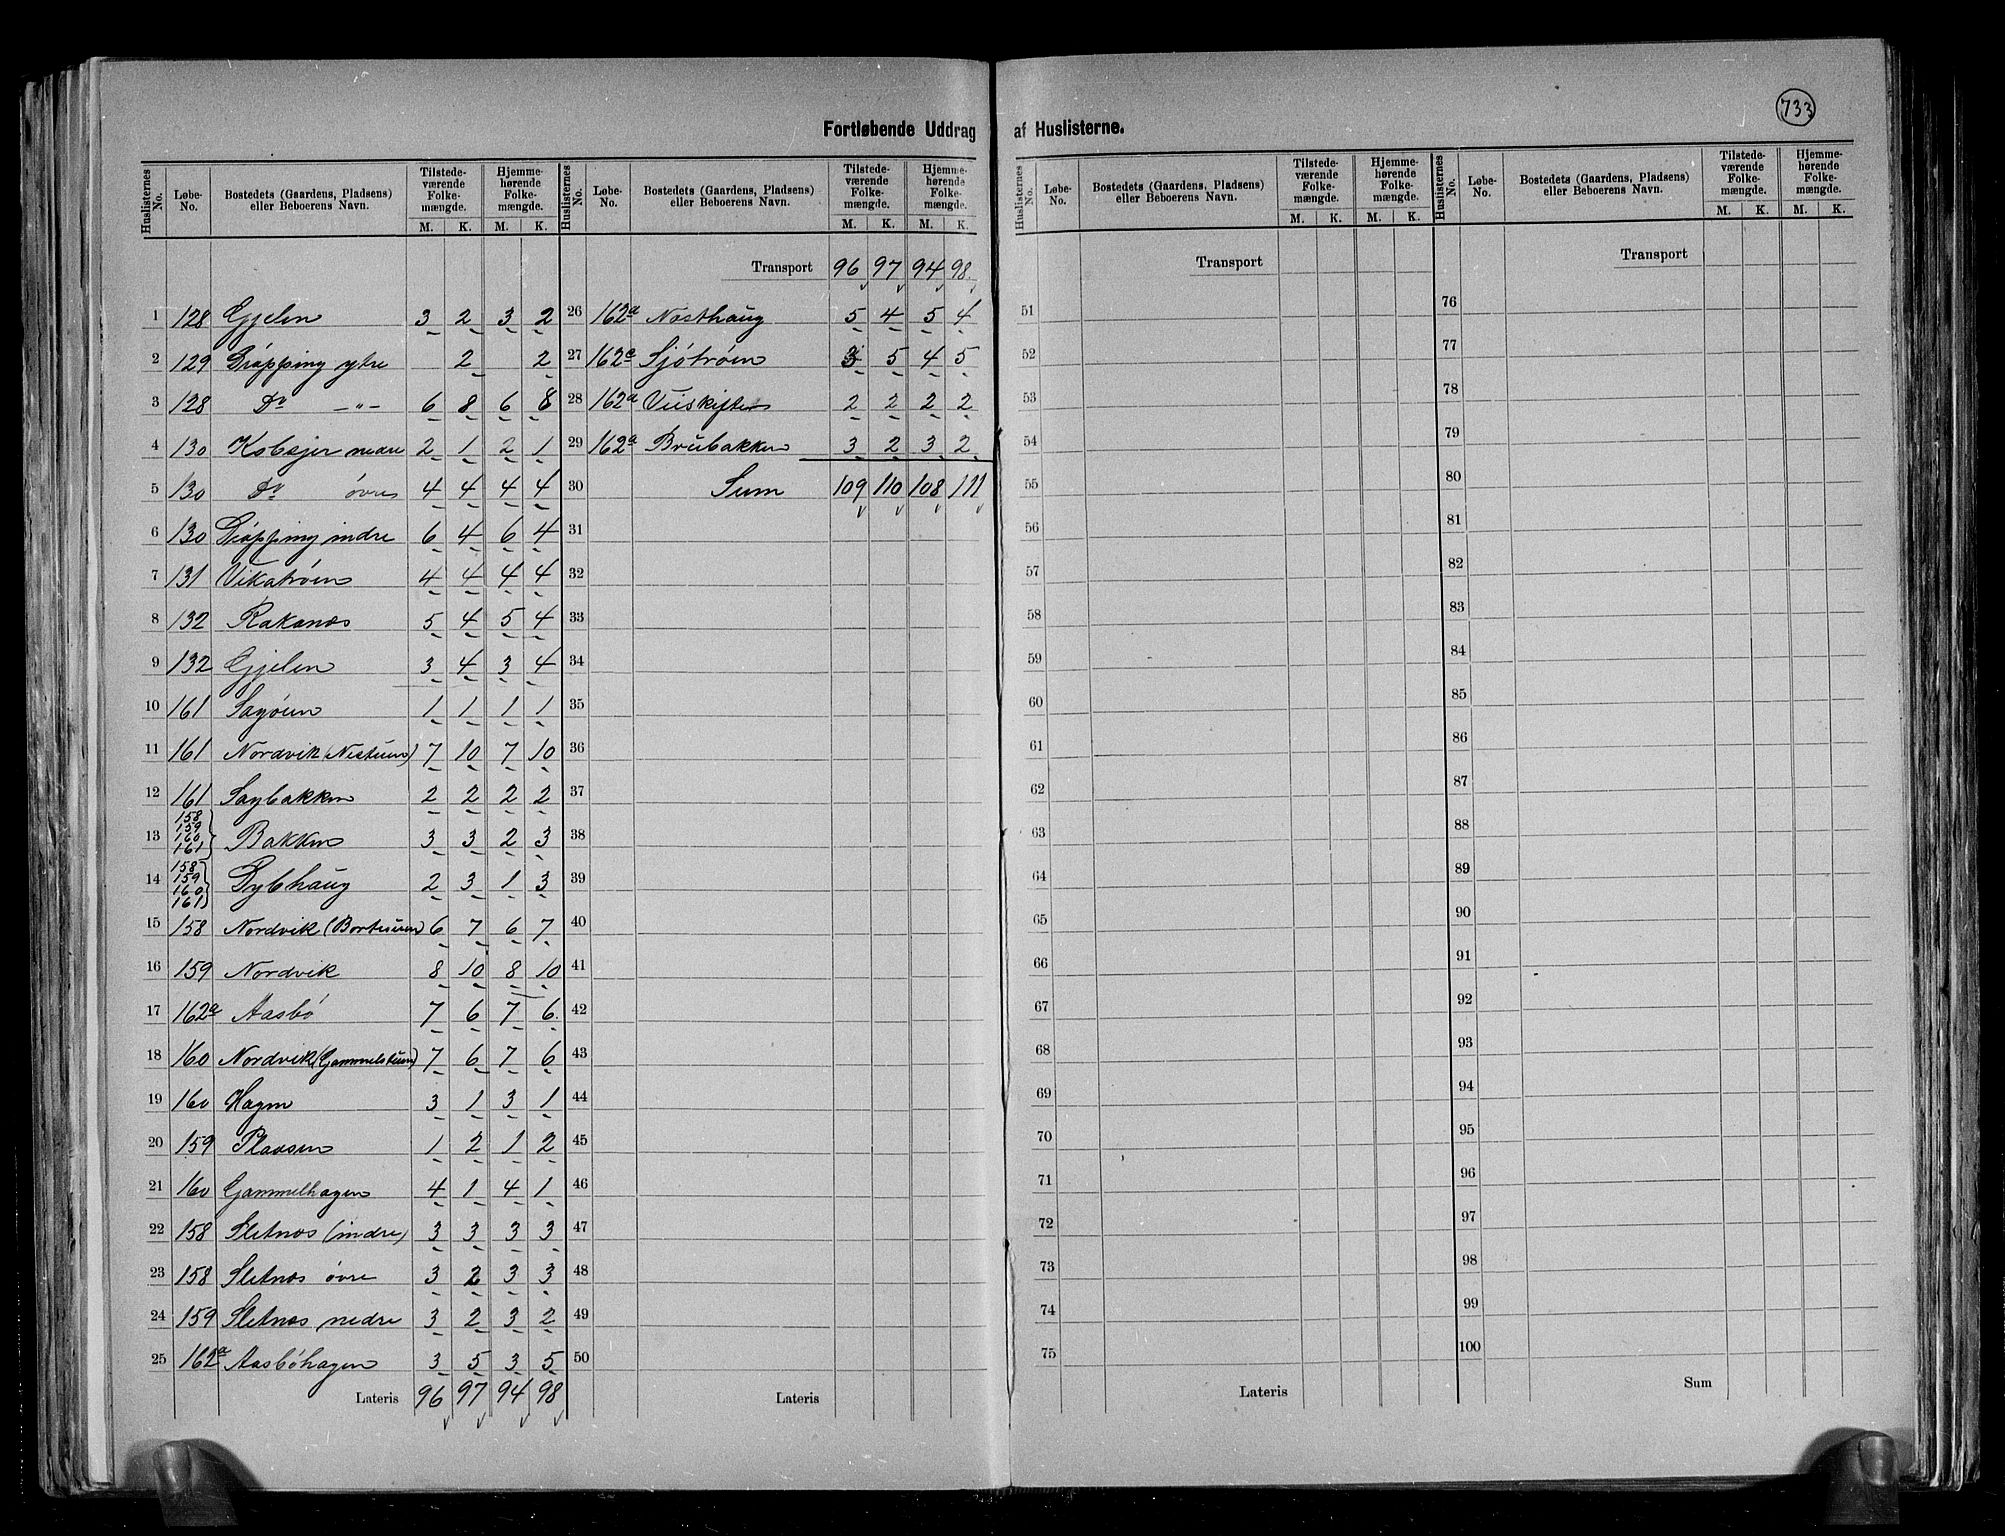 733
Fortløbende Uddrag af Huslisterne.
Huslisternes No. Løbe-No. Bostedets (Gaardens, Pladsens) eller Beboerens Navn. Tilstedeværende Folkemængde. M. K. Hjemmehørende Folkemængde. M. K.
1 128 Gjelen 3 2 3 2
2 129 Drøpping ytre 2 2
3 128 Do —"— 6 8 6 8
4 130 Kobsjer nedre 2 1 2 1
5 130 Do øvre 4 4 4 4
6 130 Drøpping indre 6 4 6 4
7 131 Vikatrøen 4 4 4 4
8 132 Rakanes 5 4 5 4
9 132 Gjelen 3 4 3 4
10 161 Sagøien 1 1 1 1
11 161 Nordvik (Nestuen) 7 10 7 10
12 161 Sagbakken 2 2 2 2
13 158 159 160 161 Bakken 3 3 2 3
14 158 159 160 161 Dybhaug 2 3 1 3
15 158 Nordvik (Bortstuen) 6 7 6 7
16 159 Nordvik 8 10 8 10
17 162a Aasbø 7 6 7 6
18 160 Nordvik (Gammelstuen) 7 6 7 6
19 160 Hagen 3 1 3 1
20 159 Pladsen 1 2 1 2
21 160 Gammelhagen 4 1 4 1
22 158 Sletnæs (indre) 3 3 3 3
23 158 Sletnæs øvre 3 2 3 3
24 159 Sletnæs nedre 3 2 3 2
25 162a Aasbøhagen 3 5 3 5
Lateris 96 97 94 98
Huslisternes No. Løbe-No. Bostedets (Gaardens, Pladsens) eller Beboerens Navn. Tilstedeværende Folkemængde. M. K. Hjemmehørende Folkemængde. M. K.
Transport 96 97 94 98
26 162a Nøsthaug 5 4 5 4
27 162a Sjøtrøen 3 5 4 5
28 162a Utskiften 2 2 2 2
29 162a Brubakken 3 2 3 2
30 Sum 109 110 108 111
31
32
33
34
35
36
37
38
39
40
41
42
43
44
45
46
47
48
49
50
Lateris
Huslisternes No. Løbe-No. Bostedets (Gaardens, Pladsens) eller Beboerens Navn. Tilstedeværende Folkemængde. M. K. Hjemmehørende Folkemængde. M. K.
Transport
51
52
53
54
55
56
57
58
59
60
61
62
63
64
65
66
67
68
69
70
71
72
73
74
75
Lateris
Huslisternes No. Løbe-No. Bostedets (Gaardens, Pladsens) eller Beboerens Navn. Tilstedeværende Folkemængde. M. K. Hjemmehørende Folkemængde. M. K.
Transport
76
77
78
79
80
81
82
83
84
85
86
87
88
89
90
91
92
93
94
95
96
97
98
99
100
Sum